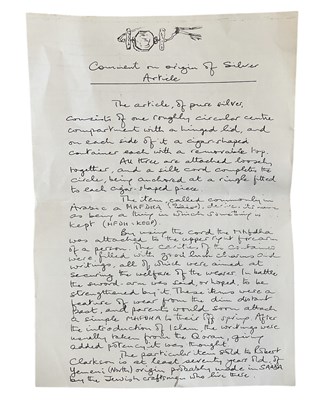 Comment on origin of Silver
Article
The article, of pure silver,
consists of one roughly circular centre
compartment with a hinged lid, and
on each side of it a cigar-shaped
container each with a removable top.
All three are attached loosely
together, and a silk cord completes the
circle, being anchored at a ringlet fitted
to each cigar-shaped piece.
The item, called commonly in
Arabic a
as being a thing in which something is
kept
By using the cord the
was attached to the upper right forearm
of a person. The cavities of the containers
were filled with good luck charms and
writings, all of which were aimed at
securing the welfare of the wearer. In battle
the sword-arm was said, or hoped, to be
strengthened by it. These items were a
feature of wear from the dim distant
past, and parents would soon attach
a simple to their offspring. After
the introduction of Islam the writings were
usually taken from the Qoran, giving
added potency it was thought.
The particular item sold to Robert
Clarkson is at least seventy years old, of
Yemeni (North) origin probably made in SANAA
by the Jewish craftsmen who live there.